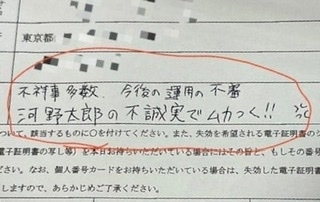 東京都
不祥事多数、今後の運用の不審
河野太郎の不誠実でムカつく!!
ついて、該当するものに○を付けてください。また、失効を希望される電子証明書の
電子証明書の写し等）を本日お持ちいただいている場合にはその旨と、もしその番号
ださい。なお、個人番号カードをお持ちいただいている場合は、失効した電子証明書
しますので、あらかじめご了承ください。